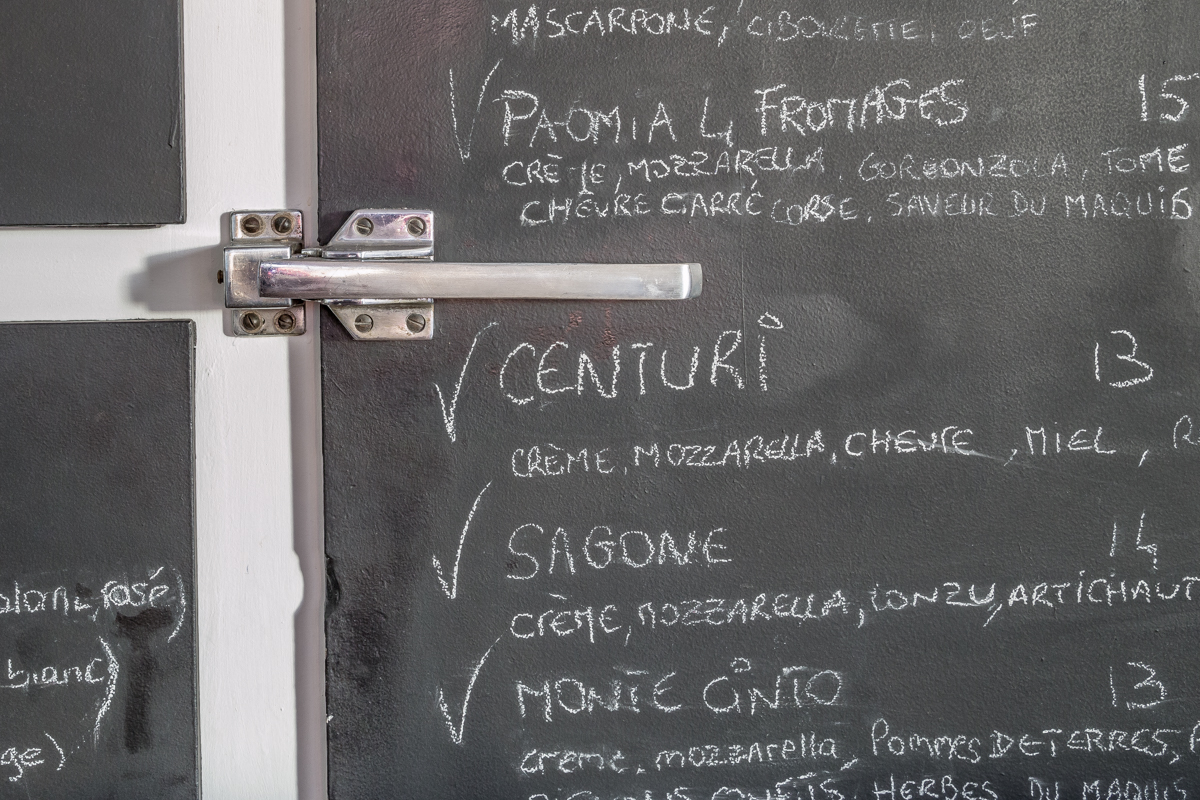 MASCARPONE, CIBOULETTE, OEUF
PAOMIA 4 FROMAGES 15
CRÈME, MOZZARELLA, GORGONZOLA, TOME
CHÈVRE CARRÉ CORSE, SAVEUR DU MAQUIS
CENTURI 13
CRÈME, MOZZARELLA, CHEVRE, MIEL, R
SAGONE 14
CRÈME, MOZZARELLA, LONZU, ARTICHAUT
MONTE CINTO 13
creme, mozzarella, Pommes DE TERRES,
HERBES DU MAQUIS
rosé)
blanc)
ge)